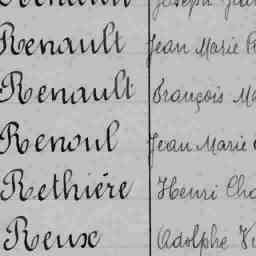 Renault Jean Marie
Renault François
Renoul Jean Marie
Rethiére Henri
Reux Adolphe